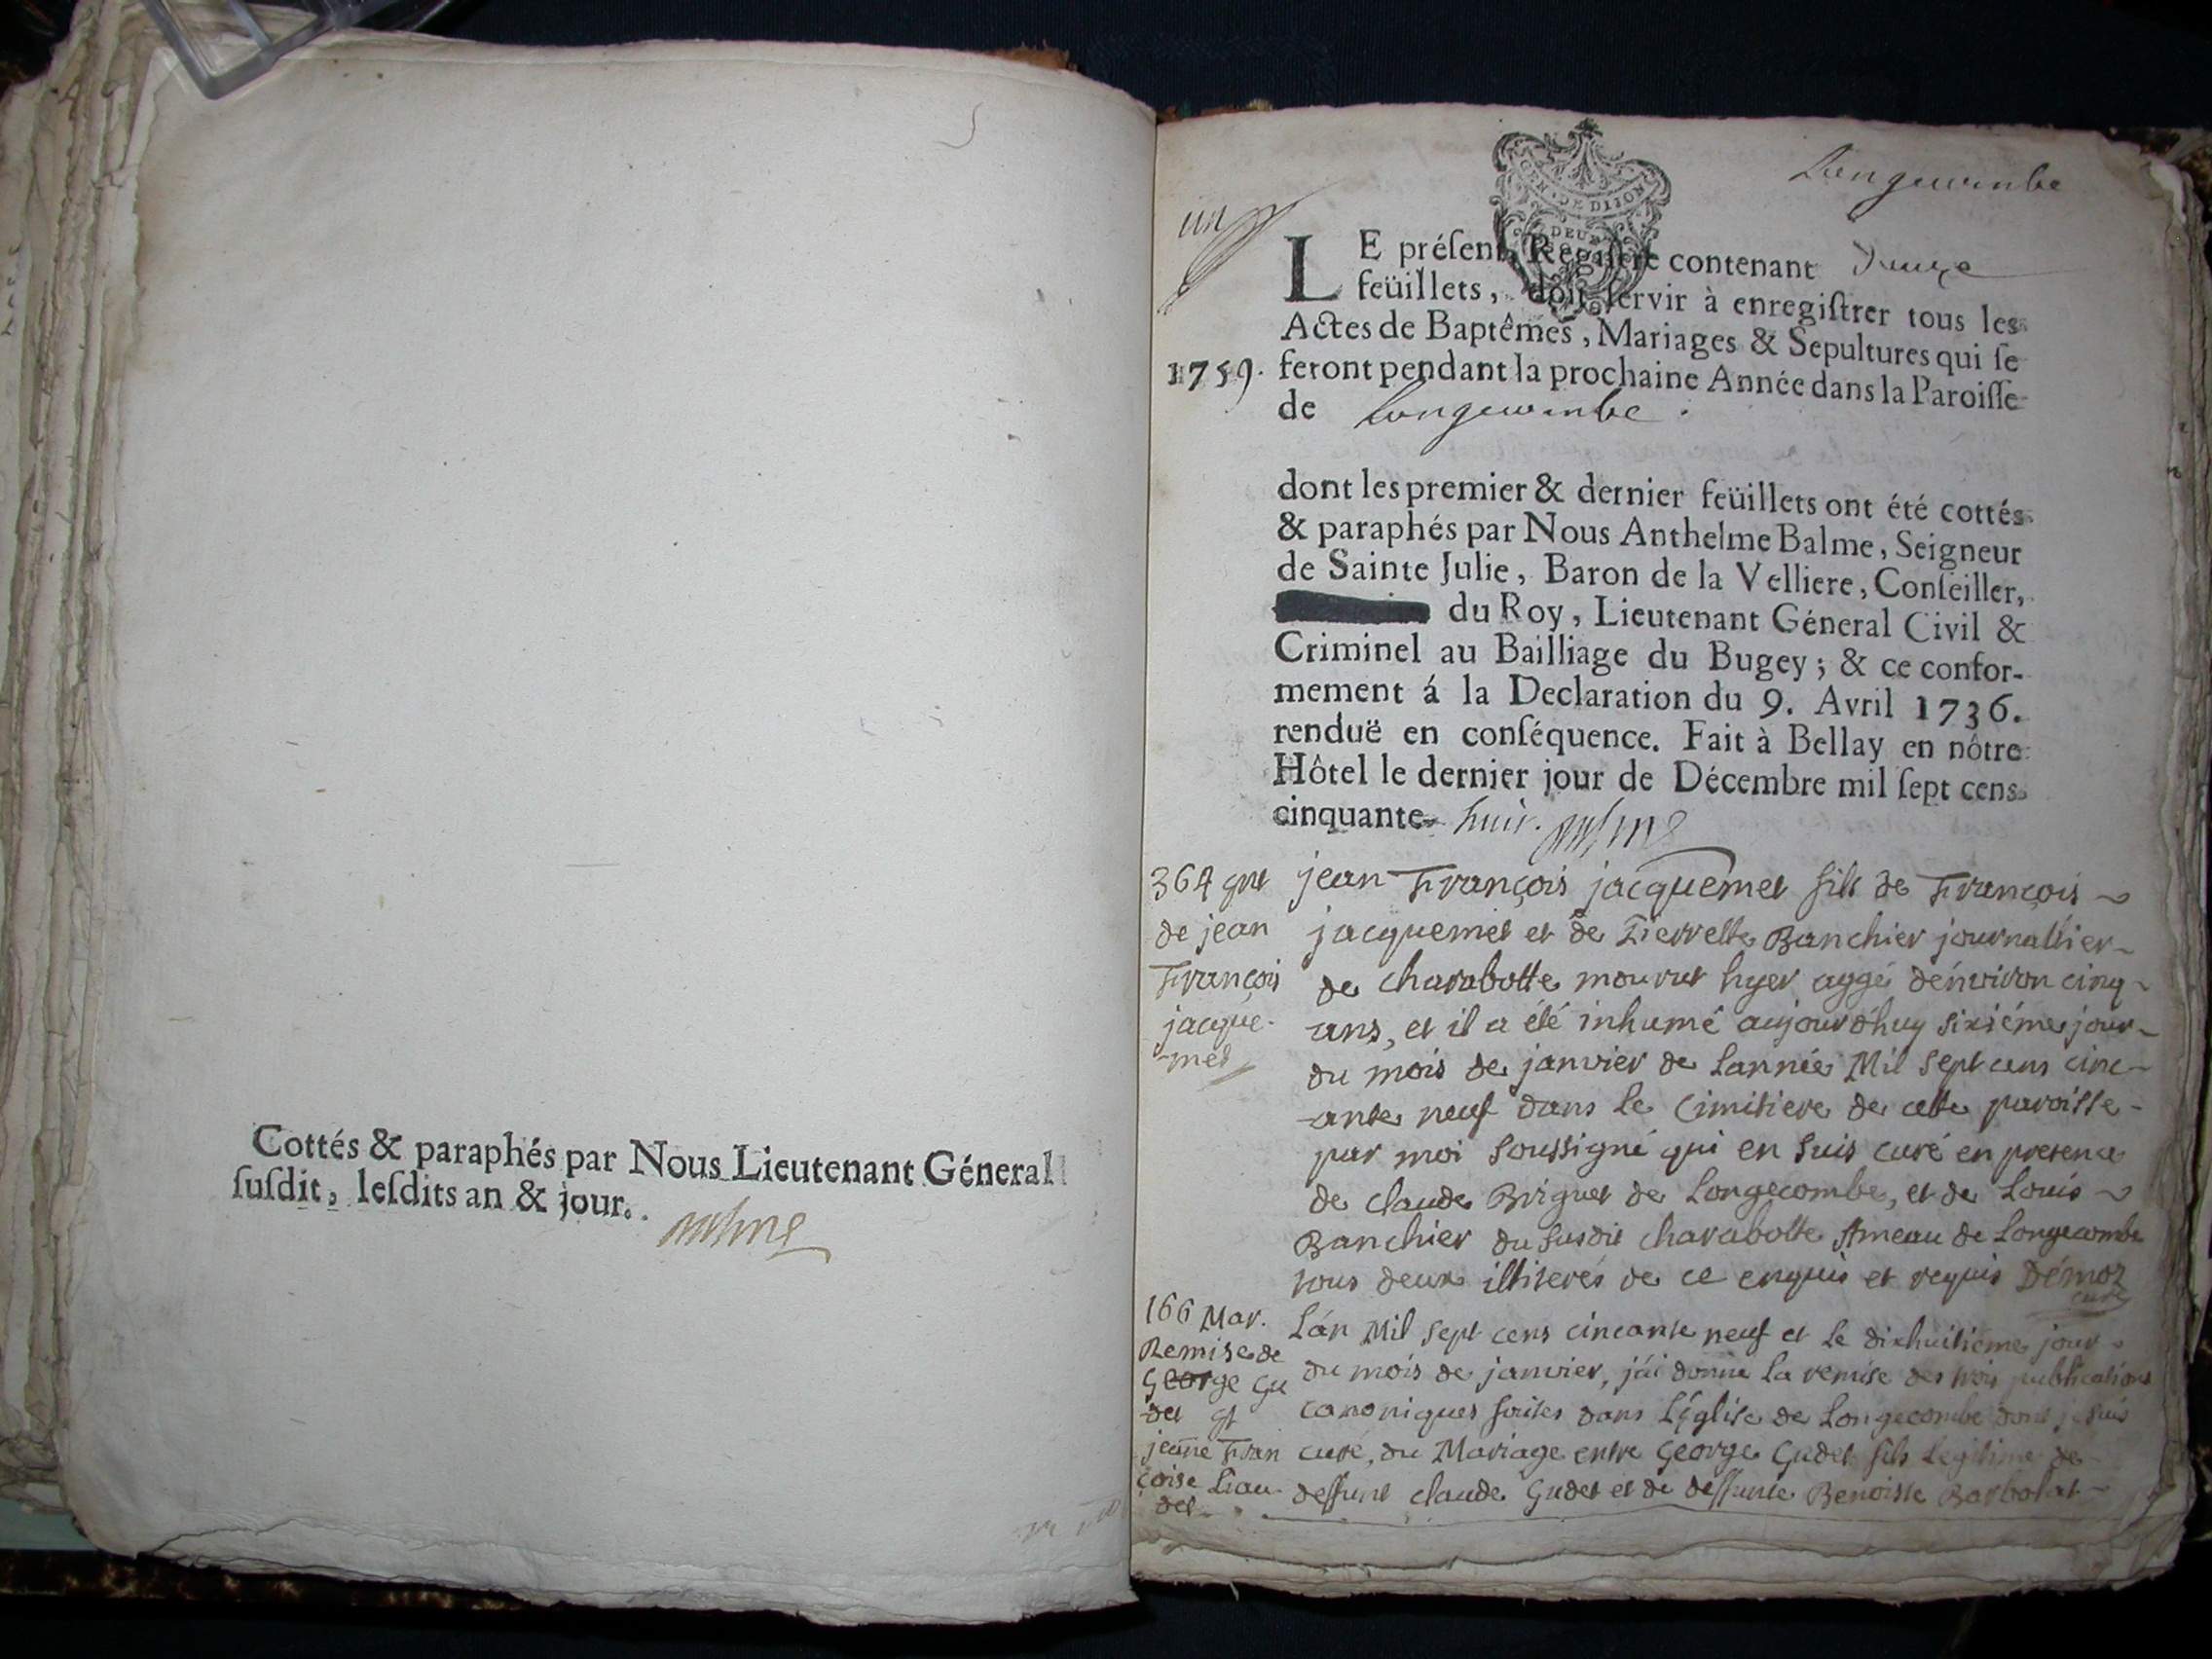 Cottés & paraphés par Nous Lieutenant Géneral
ſuſdit, leſdits an & jour.
Longecombe
GEN · DE DIJON
DEUX
un
LE préſent Regiſtre contenant Douze
feüillets, doit ſervir à enregiſtrer tous les
Actes de Baptêmes, Mariages & Sepultures qui ſe
1759. feront pendant la prochaine Année dans la Paroiſſe
de Longecombe.
dont les premier & dernier feüillets ont été cottés
& paraphés par Nous Anthelme Balme, Seigneur
de Sainte Julie, Baron de la Velliere, Conſeiller,
du Roy, Lieutenant Géneral Civil &
Criminel au Bailliage du Bugey; & ce confor-
mement á la Declaration du 9. Avril 1736.
renduë en conſéquence. Fait à Bellay en nôtre
Hôtel le dernier jour de Décembre mil ſept cens
cinquante huit.
364
de jean
François
jacque-
-met
jean François jacquemet fils de François
jacquemet et de Pierrette Banchier journallier
de charabotte mourut hyer aggé dénviron cinq
ans, et il a été inhumé aujourd'huy sixiéme jour
du mois de janvier de Lannée Mil sept cens cinc-
-ante neuf dans le Cimitiere de cette paroisse
par moi soussigné qui en suis curé en presence
de claude Briguet de Longecombe, et de Louis
Banchier du susdit charabotte Ameau de Longecombe
tous deux illiterés de ce enquis et requis Démoz
curé
166 Mar.
Remise de
George Gu
det et
jeanne Fran
çoise Liau-
det
Lán Mil sept cens cincante neuf et Le dixhuitiéme jour
du mois de janvier, j'ái donné La remise des trois publications
canoniques faites dans L'Église de Longecombe dont je suis
curé, du Mariage entre George Gudet fils Legitime de
deffunt claude Gudet et de deffunte Benoiste Barbolat